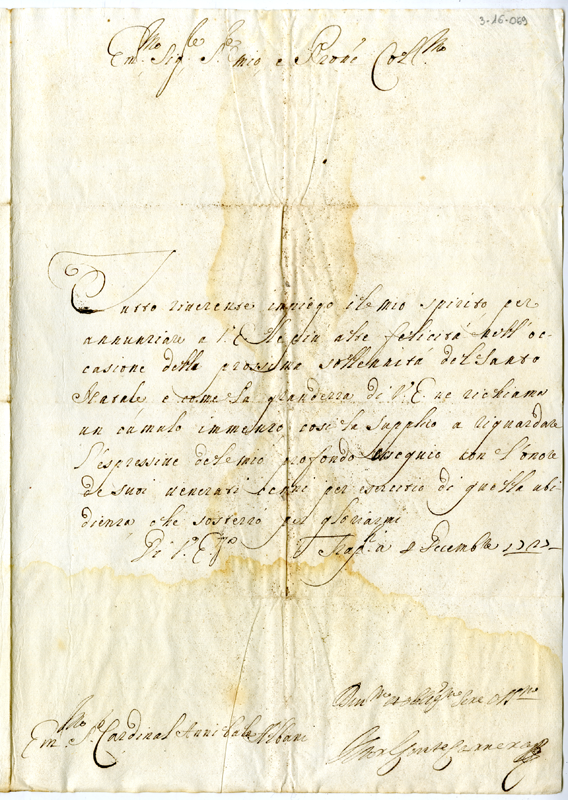 3-16-069
Em.mo Sig.re S.re mio, e Prone Coll.mo
Tutto riverente impiego il mio spirito per
annunziare a V. E. le piu alte felicità nell'oc-
casione della prossima sollennità del Santo
Natale e come la grandezza di V. E. ne richiama
un cumulo immenso così la supplico a riguardare
l'espressine del mio profondo ossequio con l'onore
de suoi venerati cenni per esercitio di quella ubi
dienza che sosterrò per gloriarmi
Di V. E.
8 Decembre 1727
Em.mo S.r Cardinal Annibale Albani
Conte